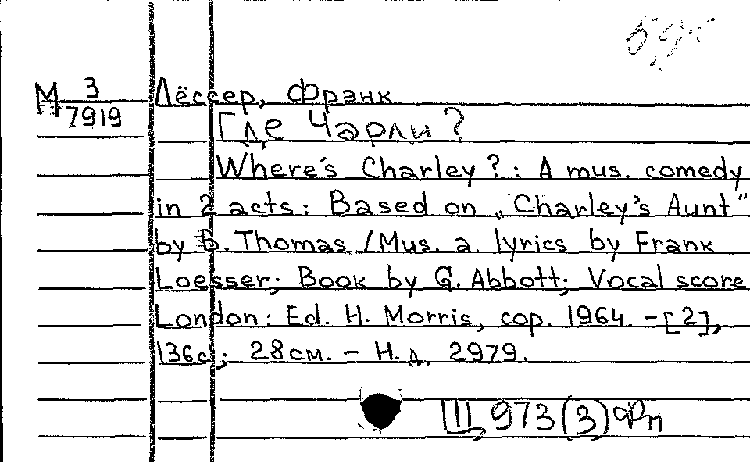 М 3
7919
Лёссер, Фрэнк
Где Чарли?
Where's Charley?: A mus. comedy
in 2 acts: Based on „Charley's Aunt"
by B. Thomas /Mus. a. lyrics by Frank
Loesser; Book by G. Abbott; Vocal score
London: Ed. H. Morris, cop. 1964. -[2],
136с; 28см. - Н.д. 2979.
Ш 973(3)Фп